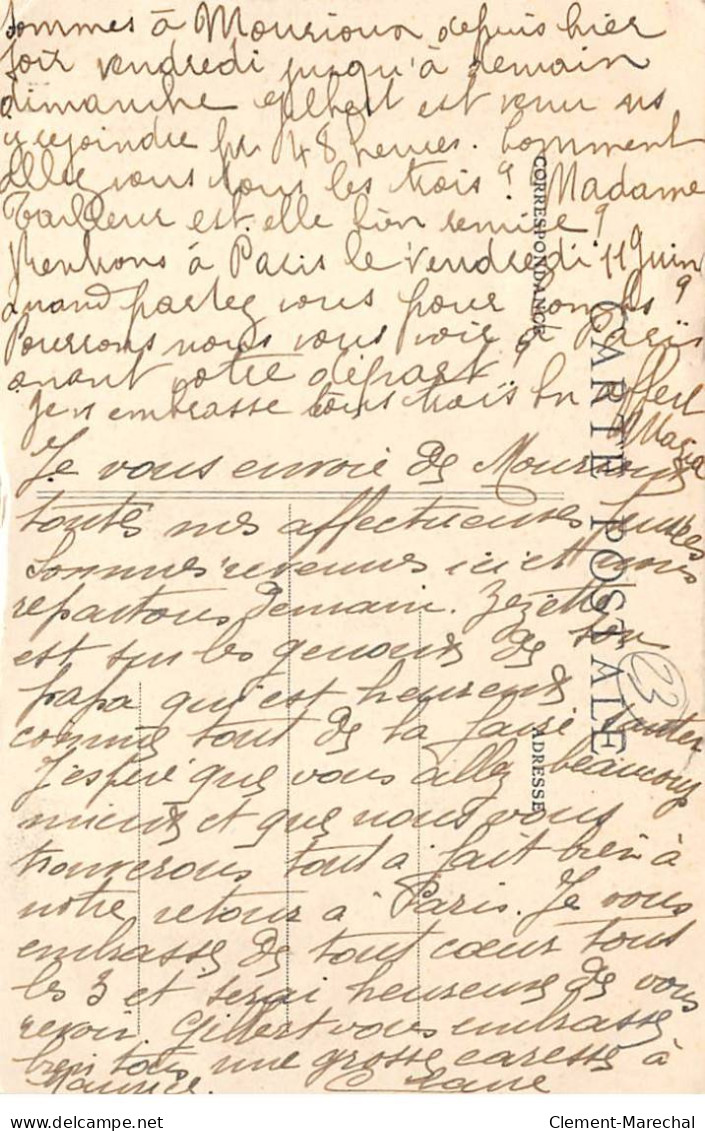 sommes à Mourioux depuis hier
soir vendredi jusqu'à demain
dimanche Gilbert est venu ns
y rejoindre pr 48 heures. Comment
allez vous tous les trois? Madame
Tailleur est elle bien remise?
Rentrons à Paris le Vendredi 11 Juin
quand partez vous pour ?
Pourrons nous vous voir à Paris
avant votre départ?
Je vs embrasse tous trois bn affect
Maria
Je vous envoie de Mourioux
toutes mes affectueuses pensées
Sommes revenues ici et nous
repartons demain. Zézette
est sur les genoux de son
papa qui est heureux
comme tout de la faire sauter
J'espère que vous allez beaucoup
mieux et que nous vous
trouverons tout à fait bien à
notre retour à Paris. Je vous
embrasse de tout cœur tout
les 3 et serai heureuse de vous
revoir. Gilbert vous embrasse
bien tous une grosse caresse à
Maurice.
CORRESPONDANCE
CARTE POSTALE
ADRESSE
23
Clement-Marechal